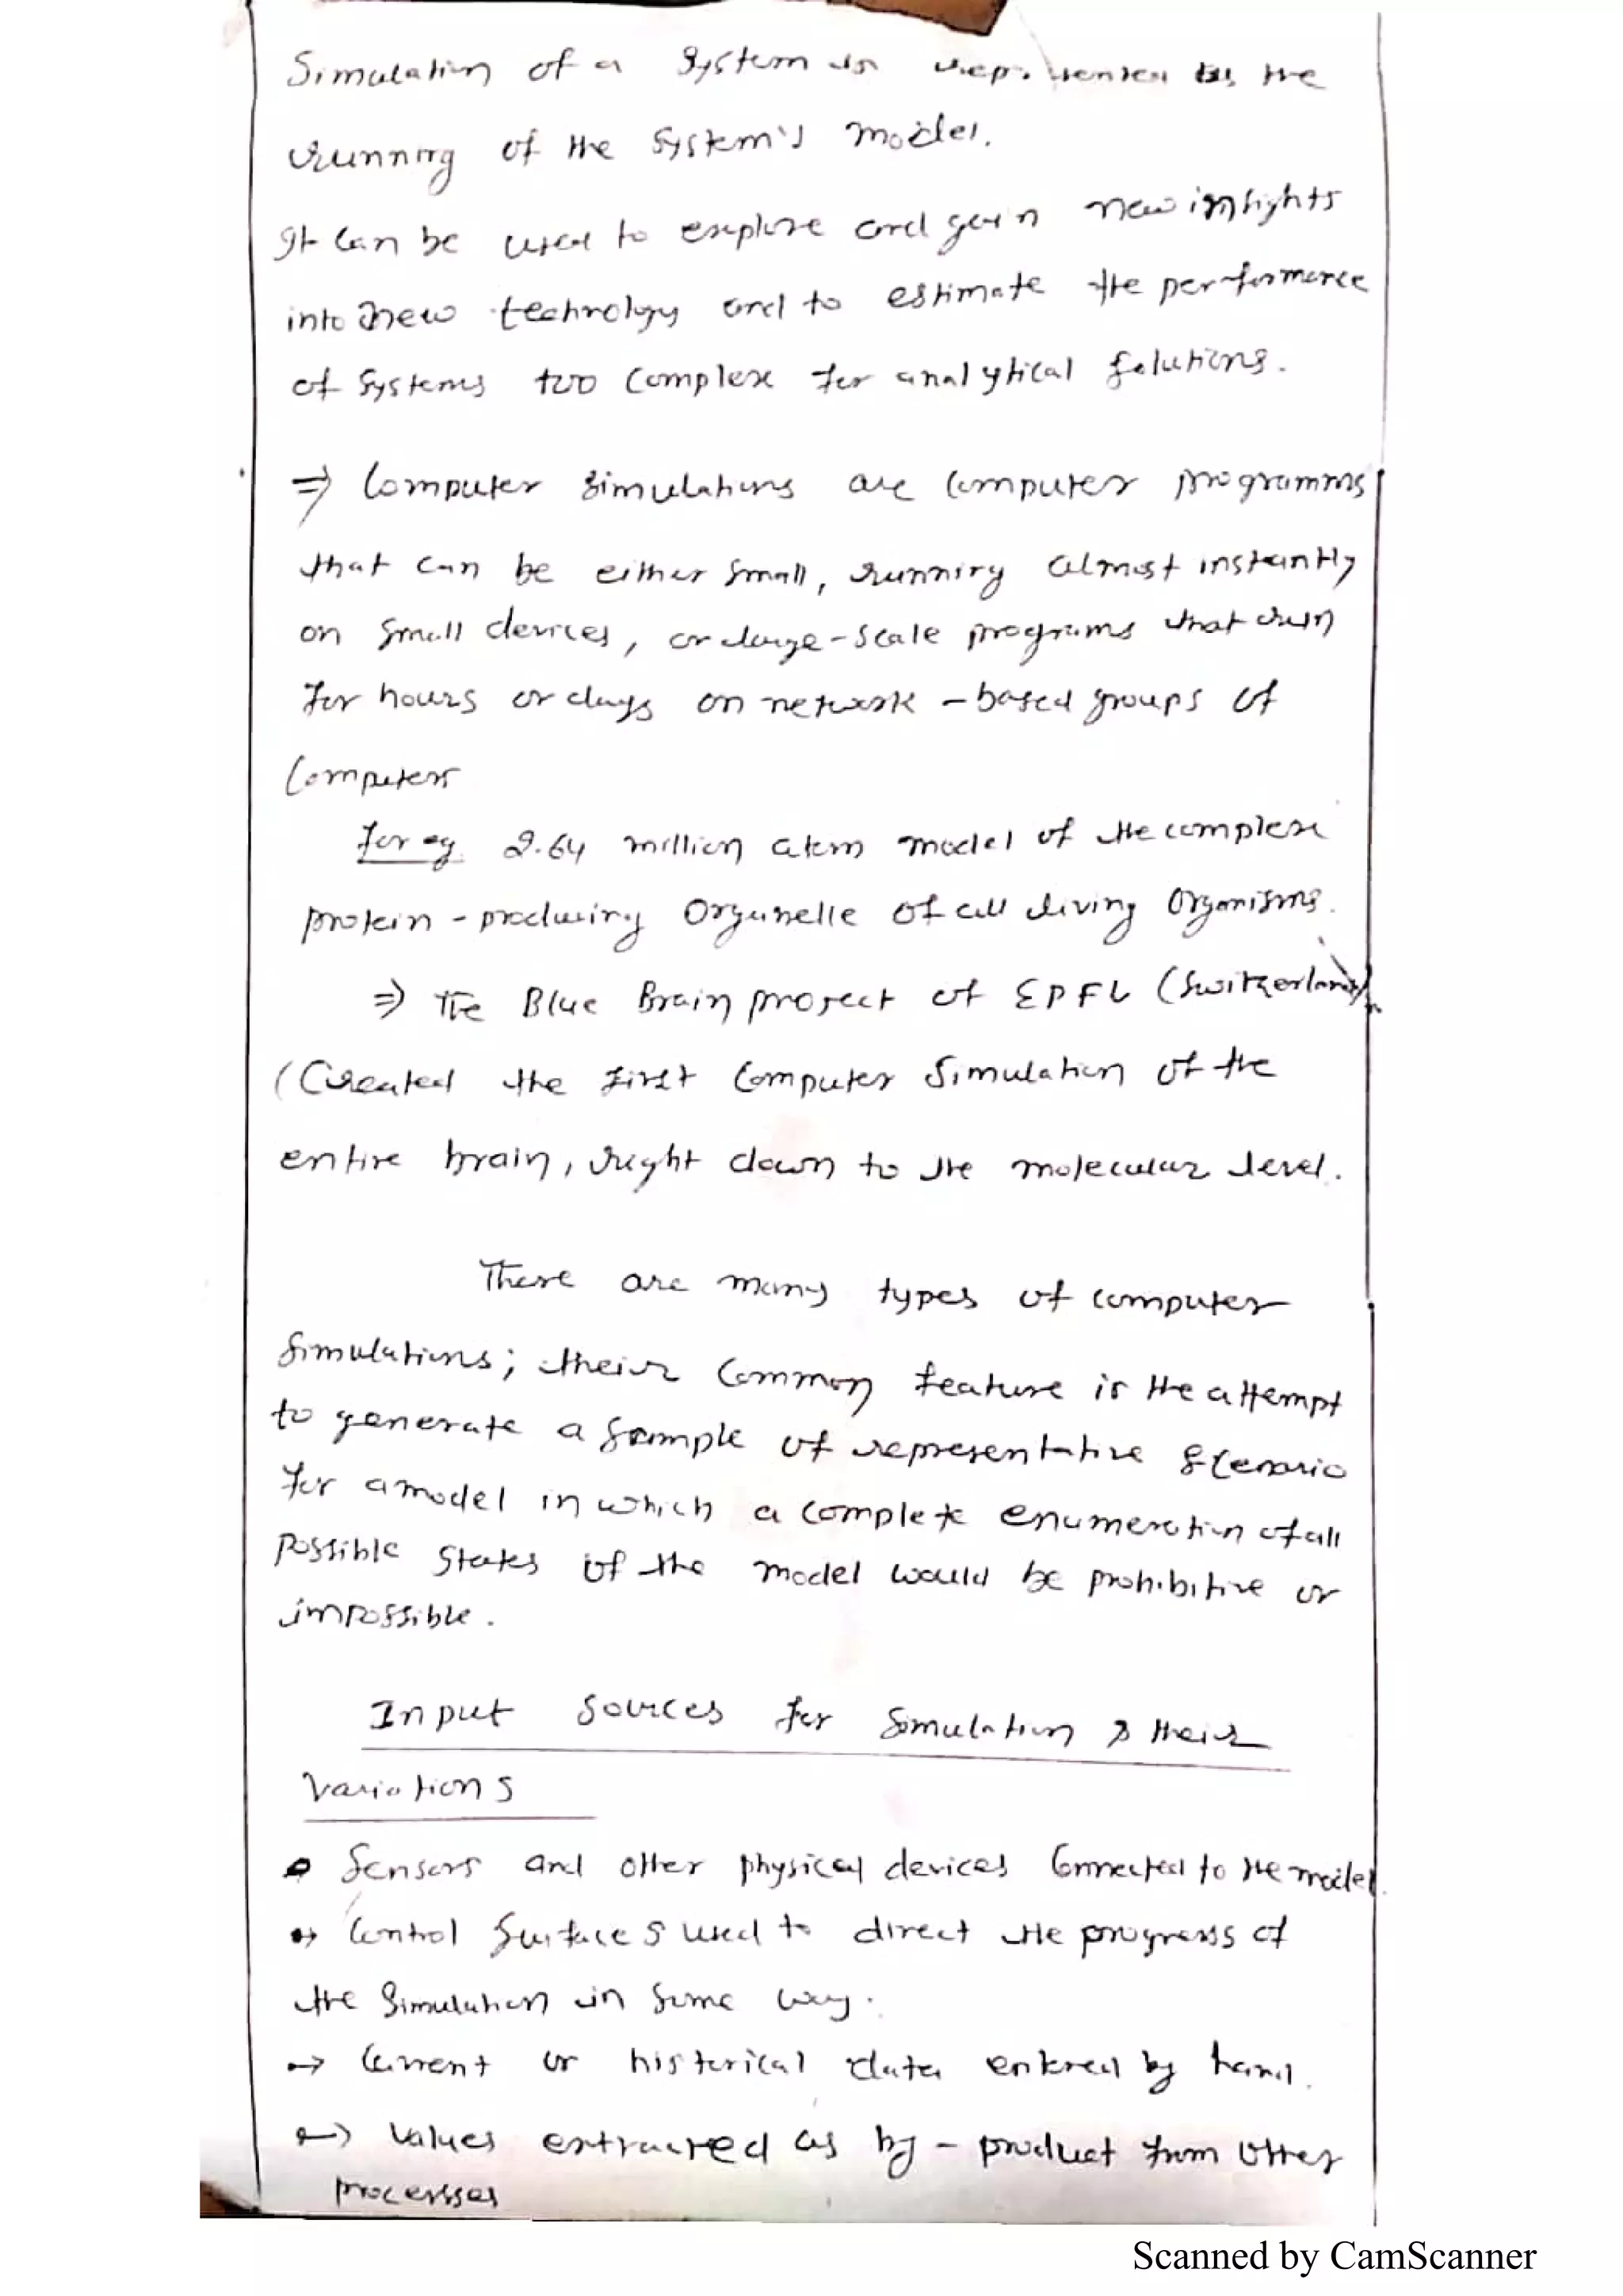 Simulation of a System is represented as the
running of the System's model.
It can be used to explore and gain new insights
into new technology and to estimate the performance
of Systems too Complex for analytical Solutions.
⇒ Computer Simulations are Computer programms
that can be either small, running almost instantly
on small devices, or large-scale programs that run
for hours or days on network-based groups of
Computers
for eg. 2.64 million atom model of the complex
protein-producing Organelle of all living Organisms.
⇒ The Blue Brain project at EPFL (Switzerland)
(Created the first Computer Simulation of the
entire brain, right down to the molecular level.
There are many types of computer
Simulations; their Common feature is the attempt
to generate a Sample of representative Scenario
for a model in which a Complete enumeration of all
Possible States of the model would be prohibitive or
impossible.
Input Sources for Simulation & their
Variations
Sensors and other physical devices Connected to the model.
→ Control Surfaces used to direct the progress of
the Simulation in Some way.
→ Current or historical data entered by hand.
→ Values extracted as by-product from other
processes
Scanned by CamScanner